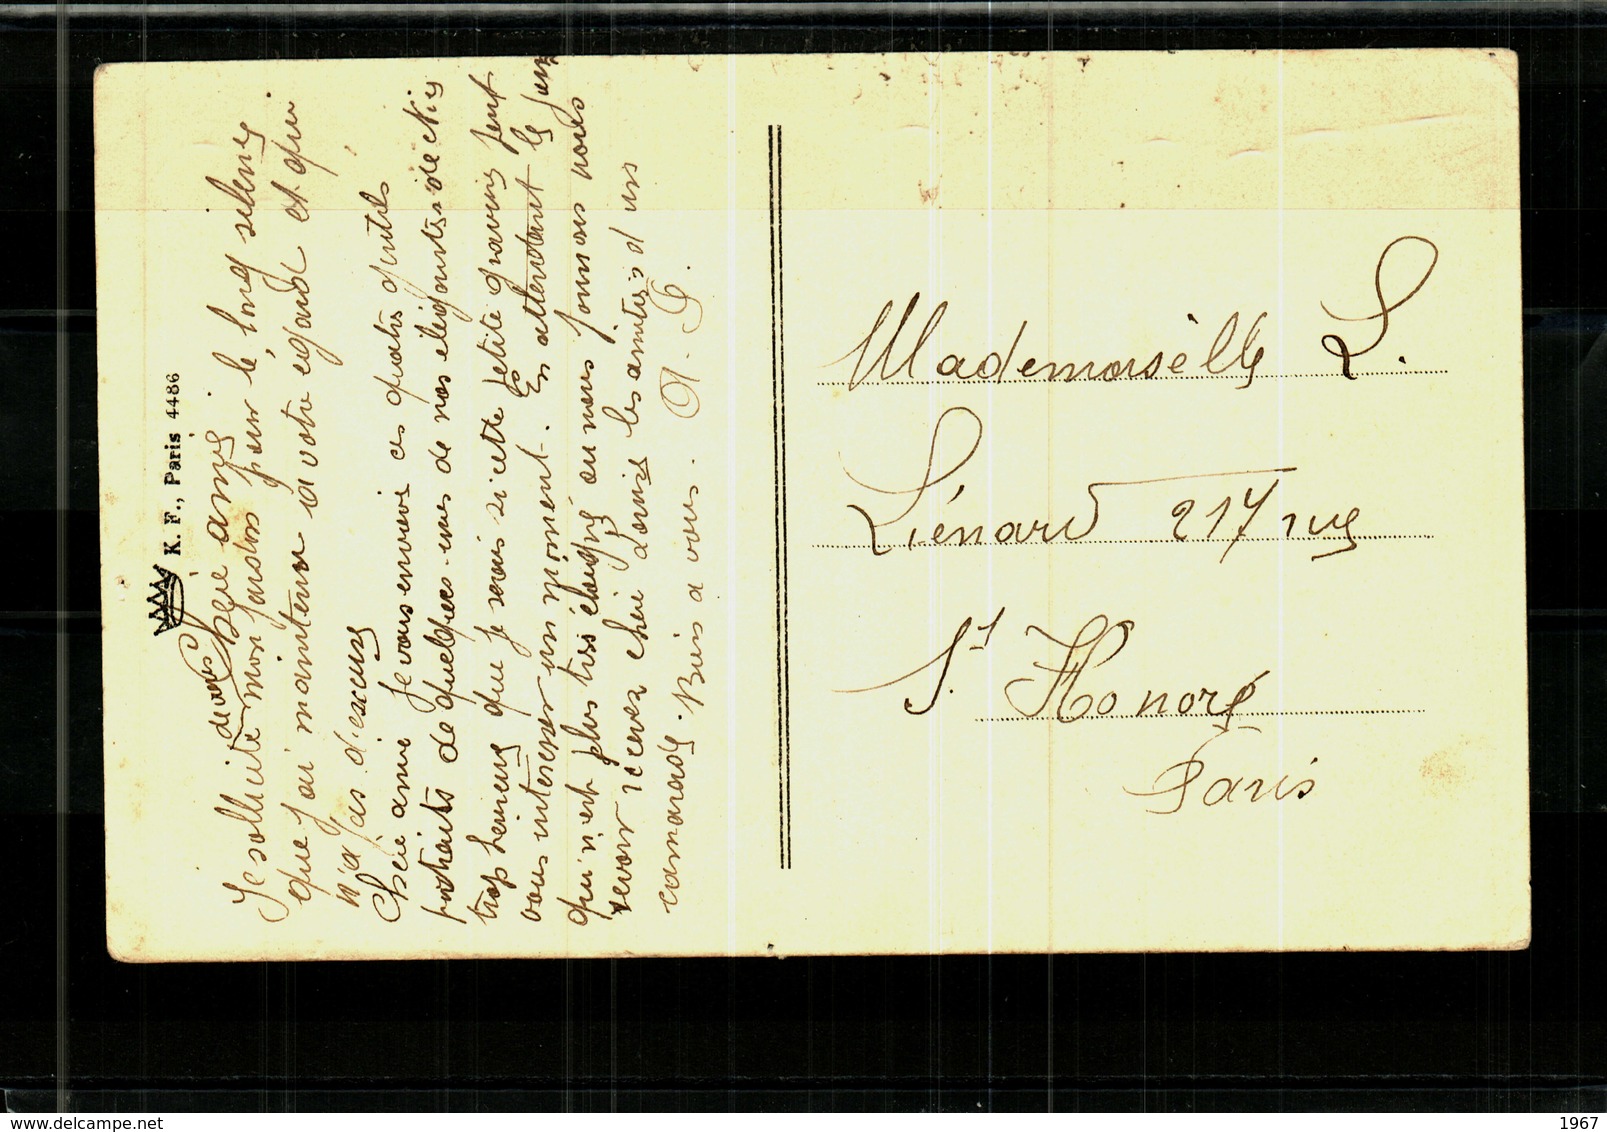 K. F., Paris 4486
Chère amie
Je sollicite de vous mon pardon pour le long silence
que j'ai maintenu à votre égard et qui
n'a pas d'excuse
Chère amie je vous envoie ces quatre gentils
portraits de quelques-unes de nos élégantes
trop heureux que je serais si cette petite
vous interesser un moment. En attendant le jour
qui n'est plus très éloigné où nous pourrons nous
revoir recevez chère Louise les amities d'un
camarade. Bien a vous. A. D.
Mademoiselle L.
Liénard 217 rue
St Honoré
Paris
delcampe.net
user036
1967